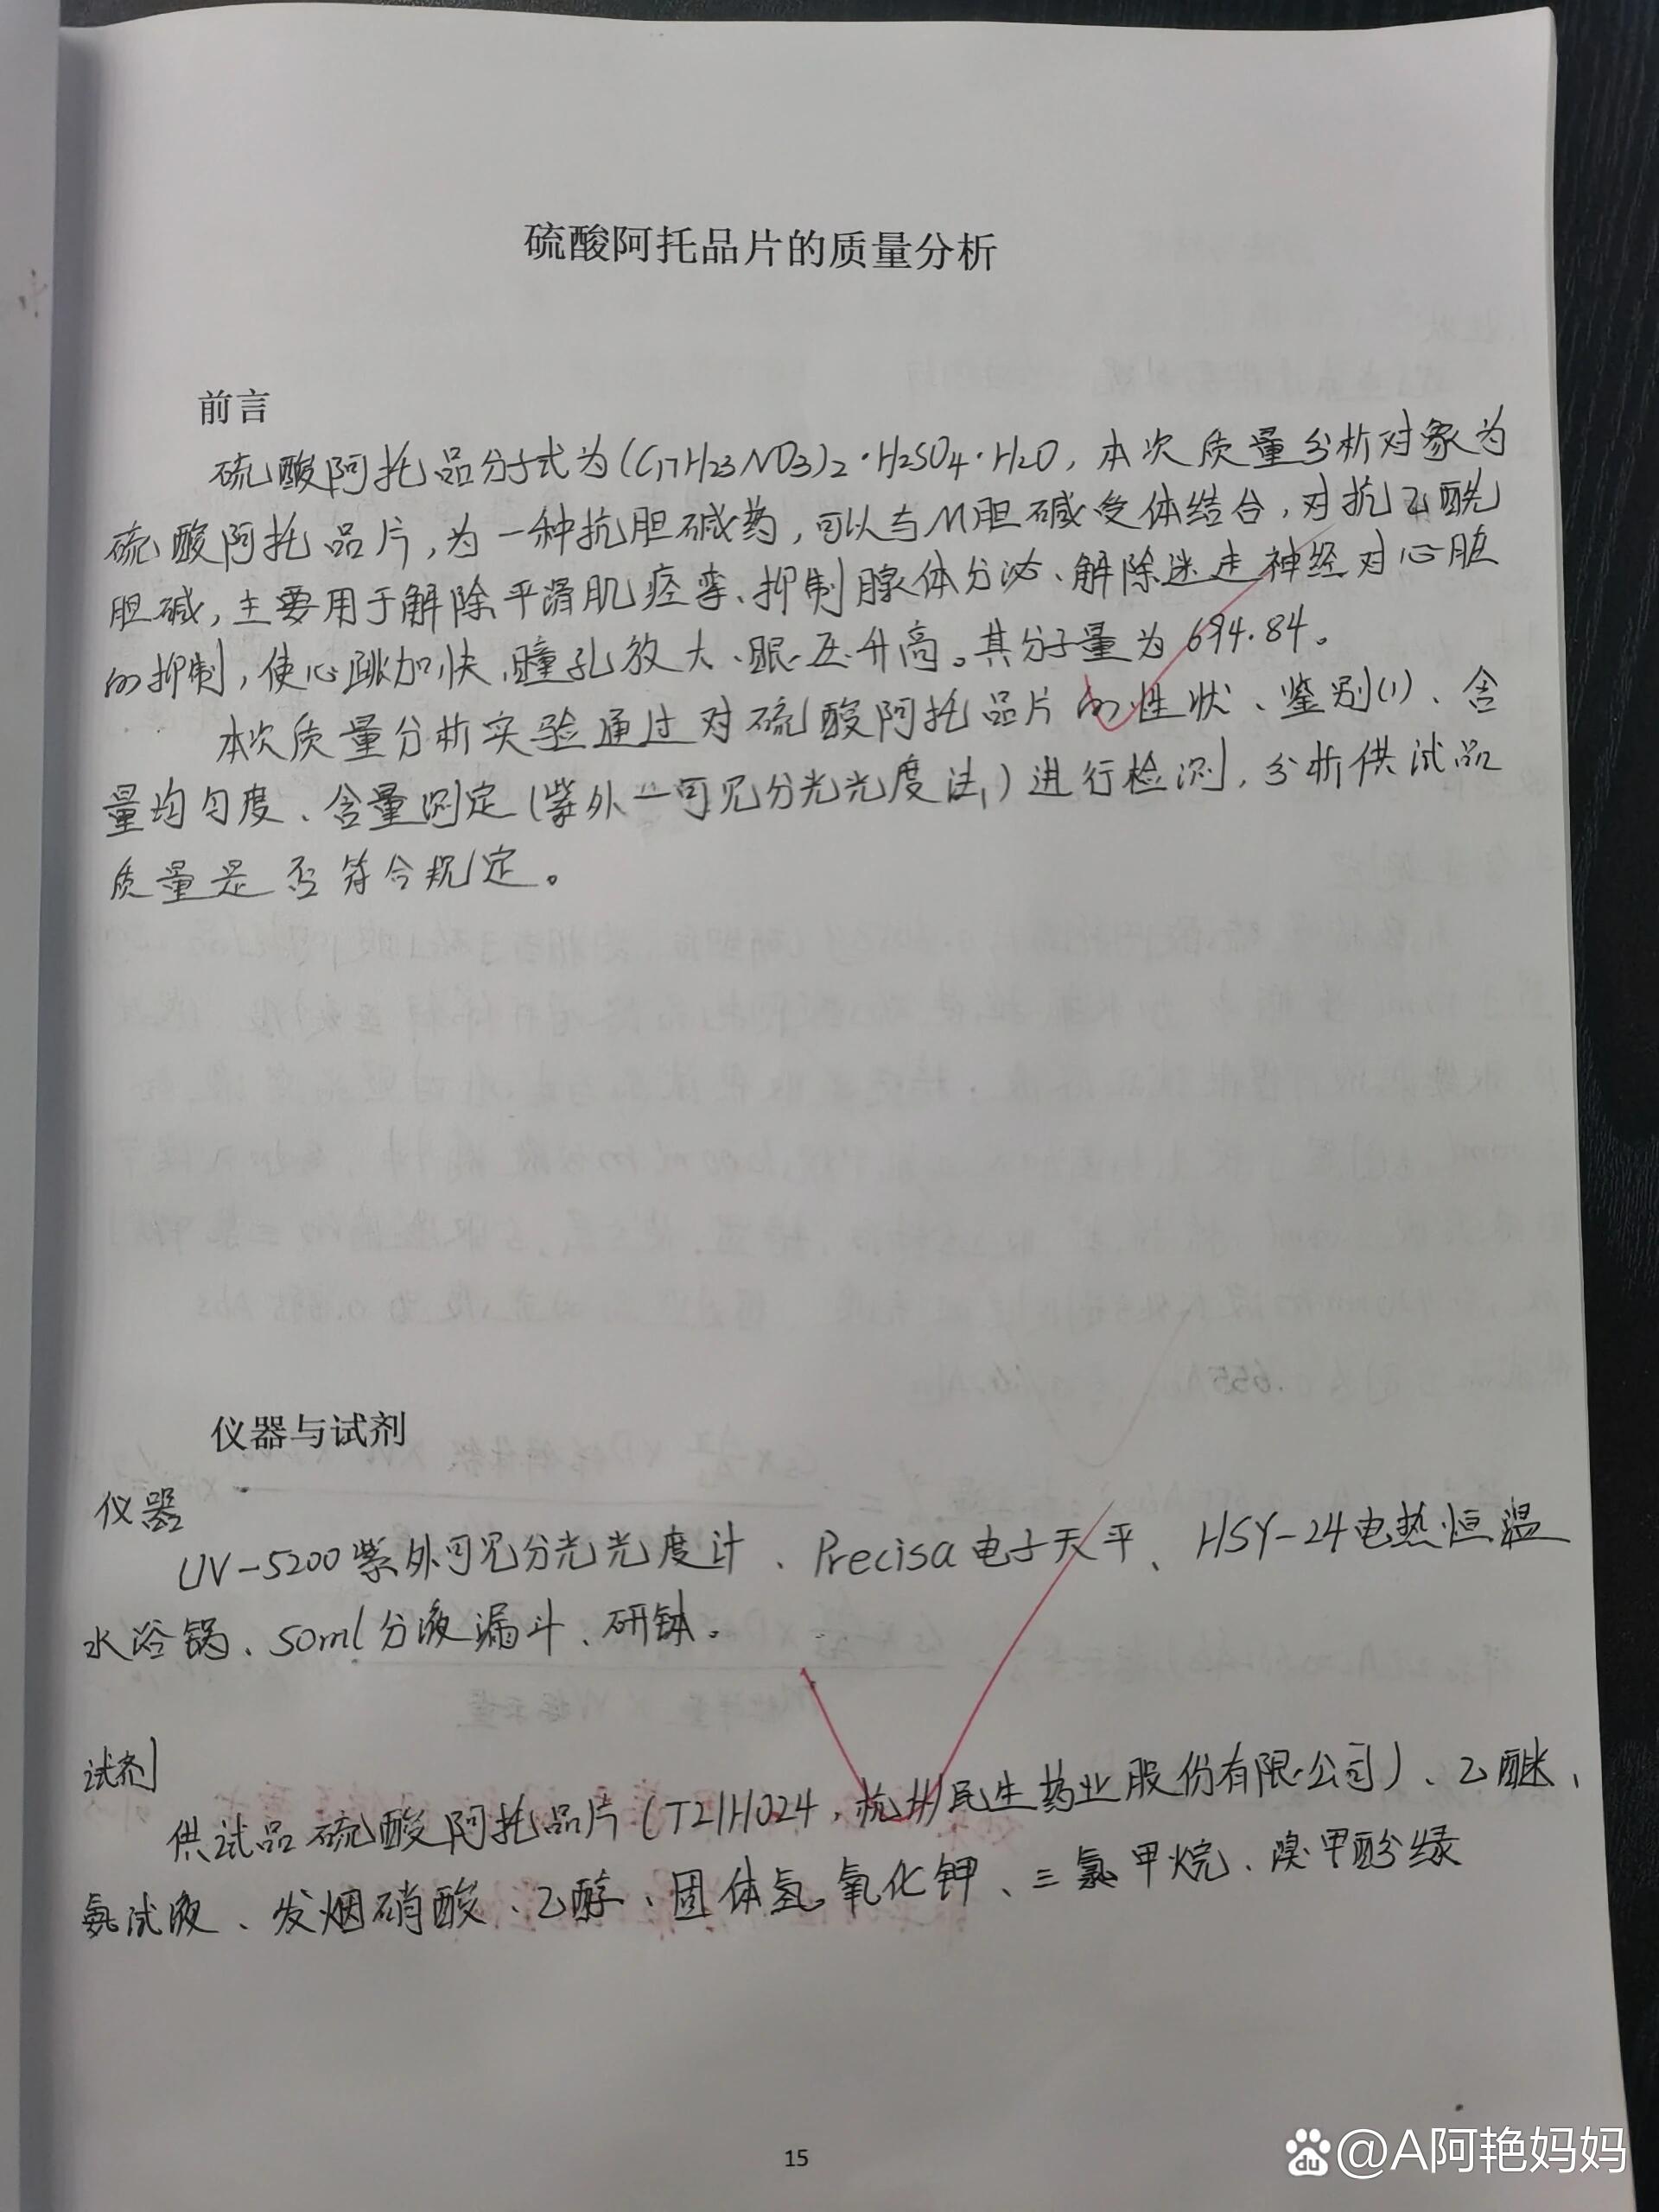 硫酸阿托品片的质量分析
前言
硫酸阿托品分子式为(C17H23NO3)2·H2SO4·H2O，本次质量分析对象为
硫酸阿托品片，为一种抗胆碱药，可以与M胆碱受体结合，对抗乙酰
胆碱，主要用于解除平滑肌痉挛、抑制腺体分泌、解除迷走神经对心脏
的抑制，使心跳加快、瞳孔放大、眼压升高。其分子量为694.84。
本次质量分析实验通过对硫酸阿托品片的性状、鉴别(1)、含
量均匀度、含量测定(紫外-可见分光光度法)进行检测，分析供试品
质量是否符合规定。
仪器与试剂
仪器
UV-5200紫外可见分光光度计、Precisa电子天平、HSY-24电热恒温
水浴锅、50ml分液漏斗、研钵。
试剂
供试品硫酸阿托品片(T21H024，杭州民生药业股份有限公司)、乙醚、
氨试液、发烟硝酸、乙醇、固体氢氧化钾、三氯甲烷、溴甲酚绿
15
du @A阿艳妈妈